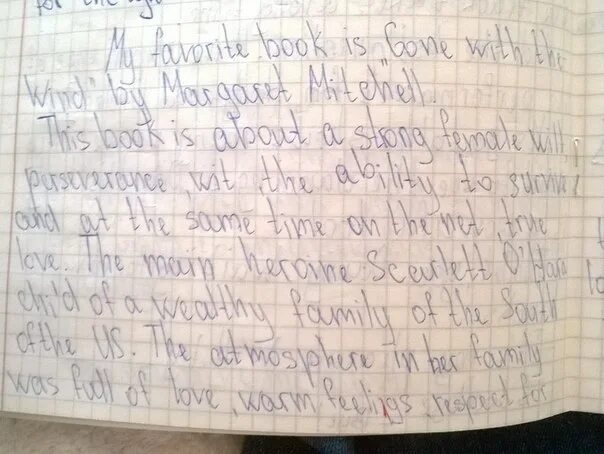 for the
My favorite book is "Gone with the
Wind" by Margaret Mitchell.
This book is about a strong female will,
perseverance, wit, the ability to survive
and at the same time on the net, true
love. The main heroine Scarlett O'Hara
child of a wealthy family of the South
of the US. The atmosphere in her family
was full of love, warm feelings, respect for